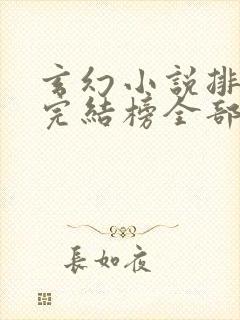 玄幻小說排
完結榜全部
長如夜